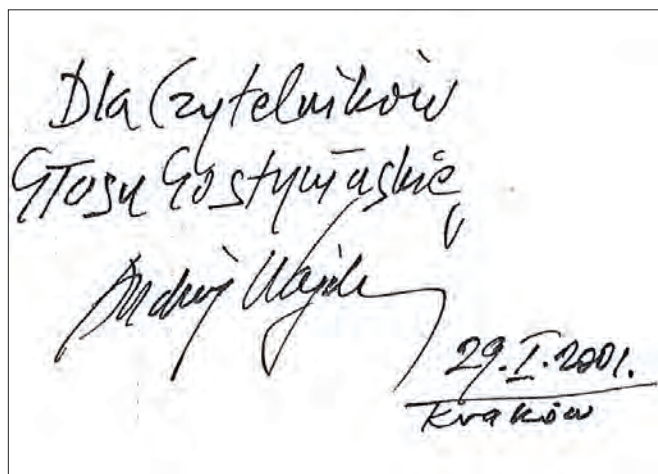 Dla Czytelników
Głosu Gostynińskie
Andrzej Wajda
29.I.2001.
Kraków